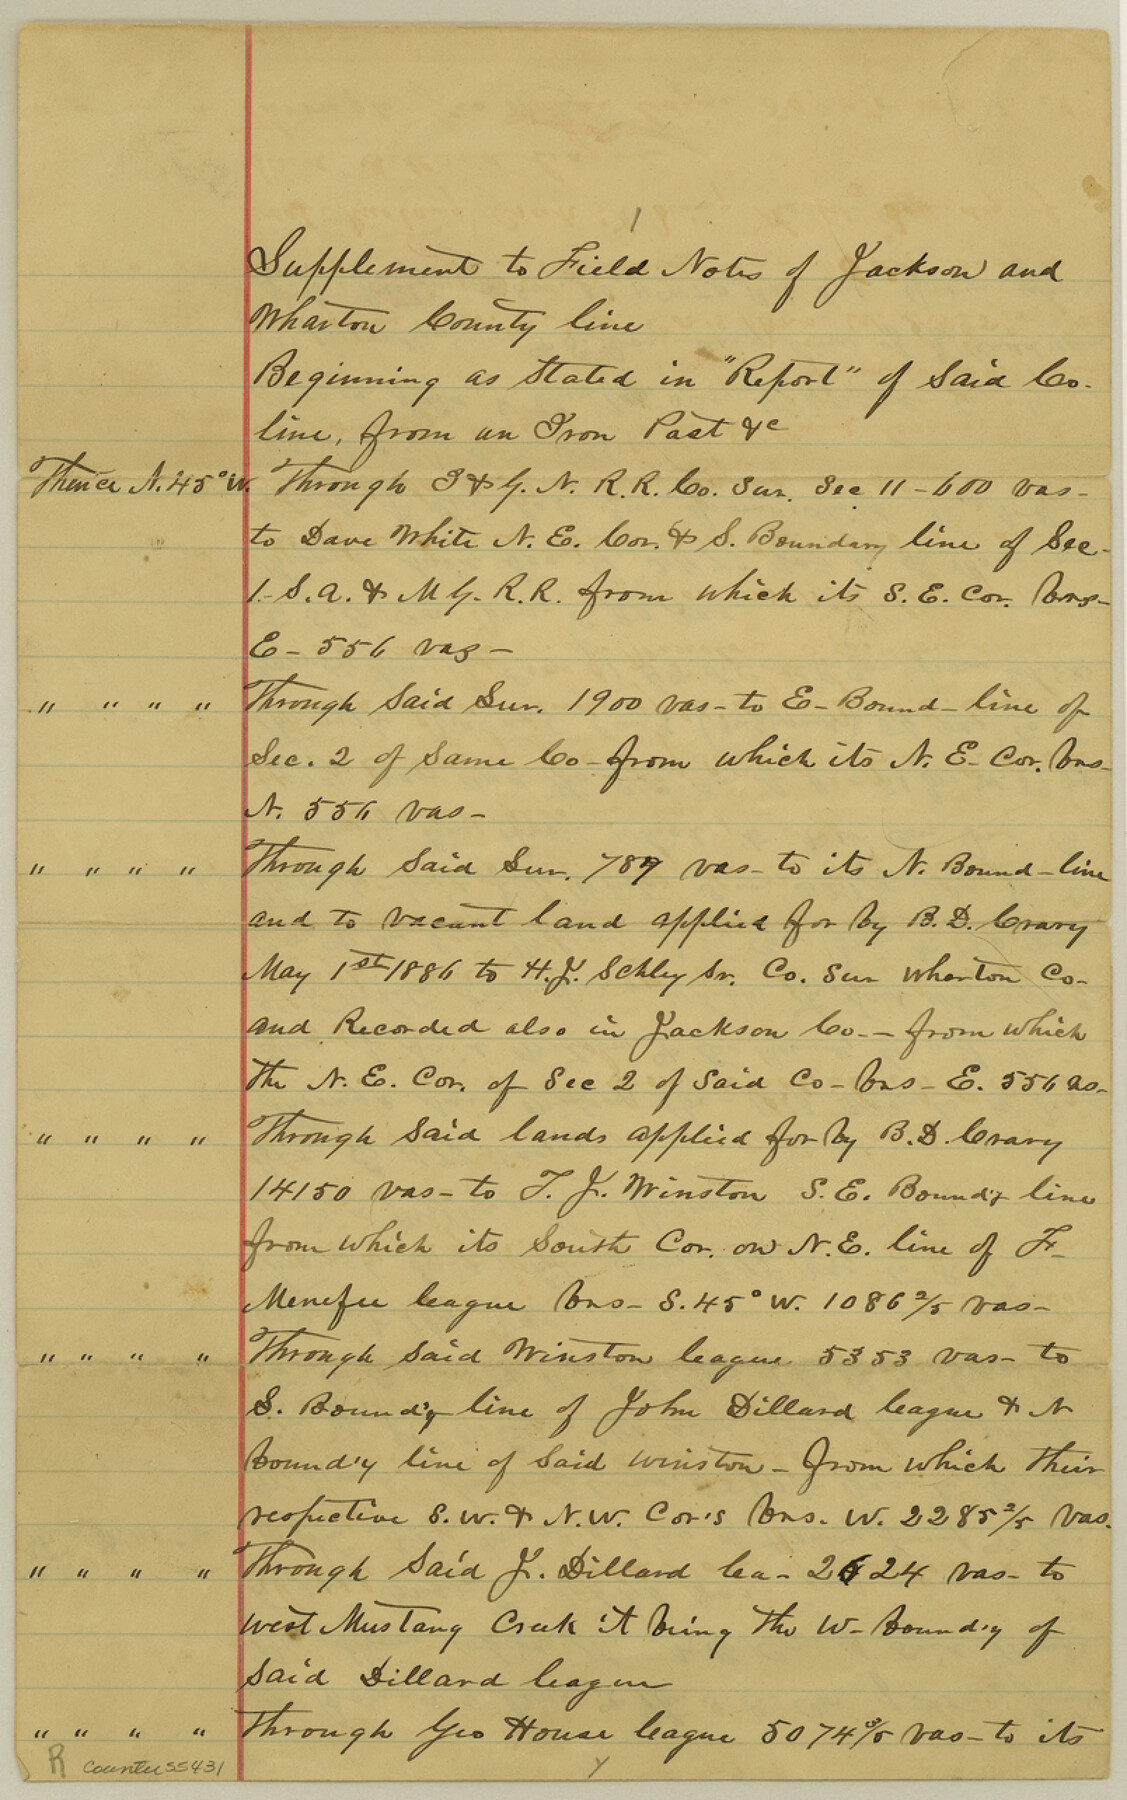 1
Supplement to Field Notes of Jackson and
Wharton County line
Beginning as Stated in "Report" of Said Co.
line, from an Iron Post &c
Thence N. 45° W. Through I & G. N. R. R. Co. Sur. Sec 11 - 600 vas -
to Dave White N. E. Cor. & S. Boundary line of Sec -
1 - S. A. & M G. R. R. from which its S. E. Cor. brs -
E - 556 vas -
" " " " Through Said Sur. 1900 vas - to E - Bound - line of
Sec. 2 of Same Co - from which its N. E - Cor. brs -
N. 556 vas -
" " " " Through Said Sur. 787 vas - to its N. Bound - line
and to vacant land applied for by B. D. Crary
May 1st 1886 to H. J. Schley Sr. Co. Sur Wharton Co -
and Recorded also in Jackson Co. - from which
the N. E. Cor. of Sec 2 of Said Co - brs - E. 556 as -
" " " " Through Said lands applied for by B. D. Crary
14150 vas - to T. J. Winston S. E. Bound'y line
from which its South Cor. on N. E. line of T.
Menefee league brs - S. 45° W. 1086 2/5 vas -
" " " " Through Said Winston league 5353 vas - to
S. Bound'y line of John Dillard league & N
bound'y line of Said Winston - from which their
respective S. W. & N. W. Cor's brs. W. 2285 2/5 vas.
" " " " Through Said J. Dillard lea - 2624 vas - to
West Mustang Creek it being the W - bound'y of
Said Dillard league
" " " " Through Geo House league 5074 3/5 vas - to its
R counter 55431